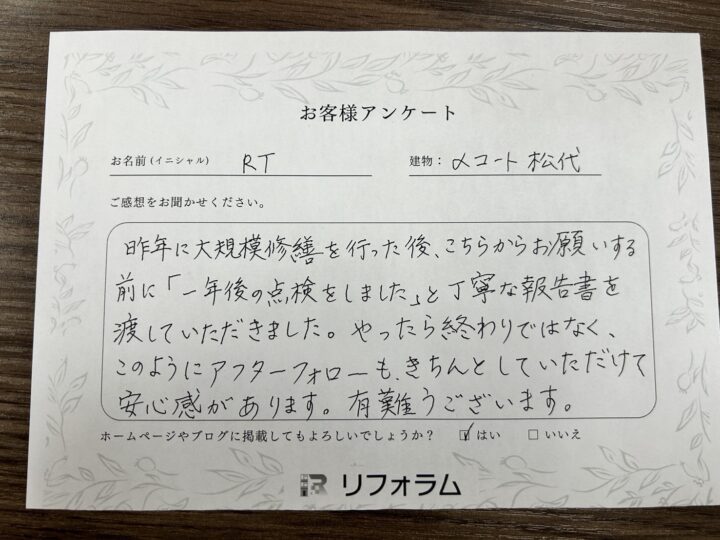 お客様アンケート
お名前(イニシャル) RT 建物: αコート 松代
ご感想をお聞かせください。
昨年に大規模修繕を行った後、こちらからお願いする
前に「一年後の点検をしました」と丁寧な報告書を
渡していただきました。やったら終わりではなく、
このようにアフターフォローも、きちんとしていただけて
安心感があります。有難うございます。
ホームページやブログに掲載してもよろしいでしょうか? ☑ はい □ いいえ
リフォラム